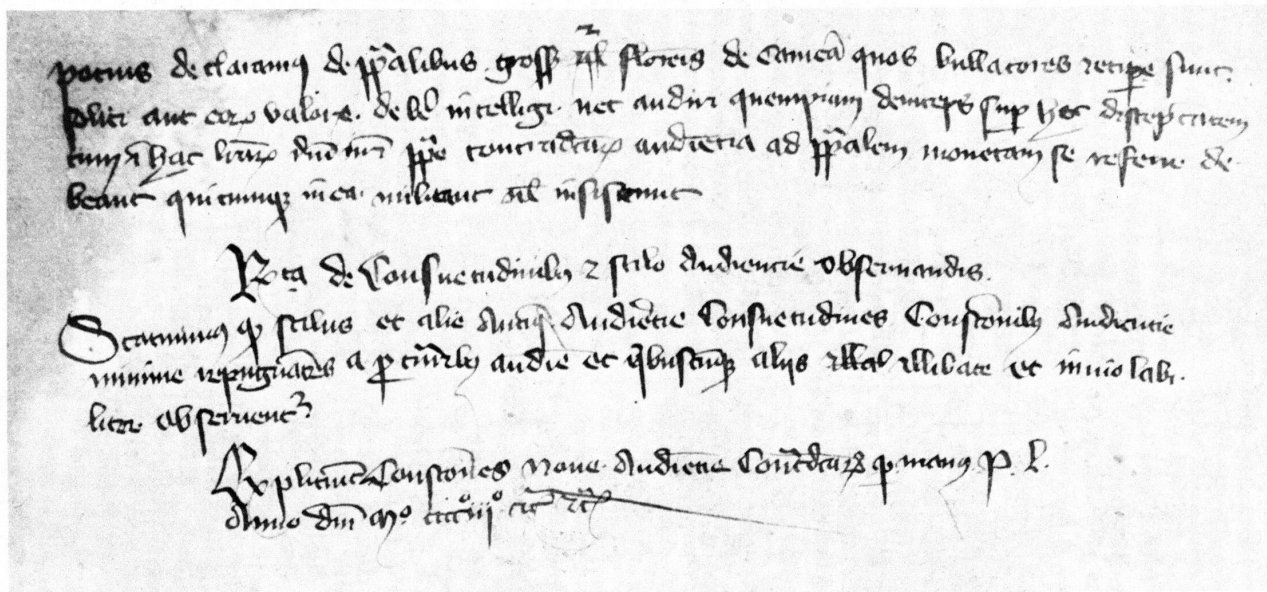 potius declaramus de papalibus gross vel florenis de Camera quos bullatores recipere sunt
soliti aut eorum valore debere intelligi nec audiri quempiam deinceps super hoc disceptantem
cum in hac audientia ad papalem monetam se referre de
beant quicumque in ea militant vel insistunt
Rca de Consuetudinibus et stilo Audiencie observandis.
Statuimus quod stilus et alie Antique Audiencie Consuetudines Constonibus Audiencie
minime repugnantes a procuratoribus audiencie et quibuscumque aliis illibate et inviolabi
liter observentur
Expliciunt Constones nove Audiencie Contradictarum per manus P. L.
Anno domini Mo